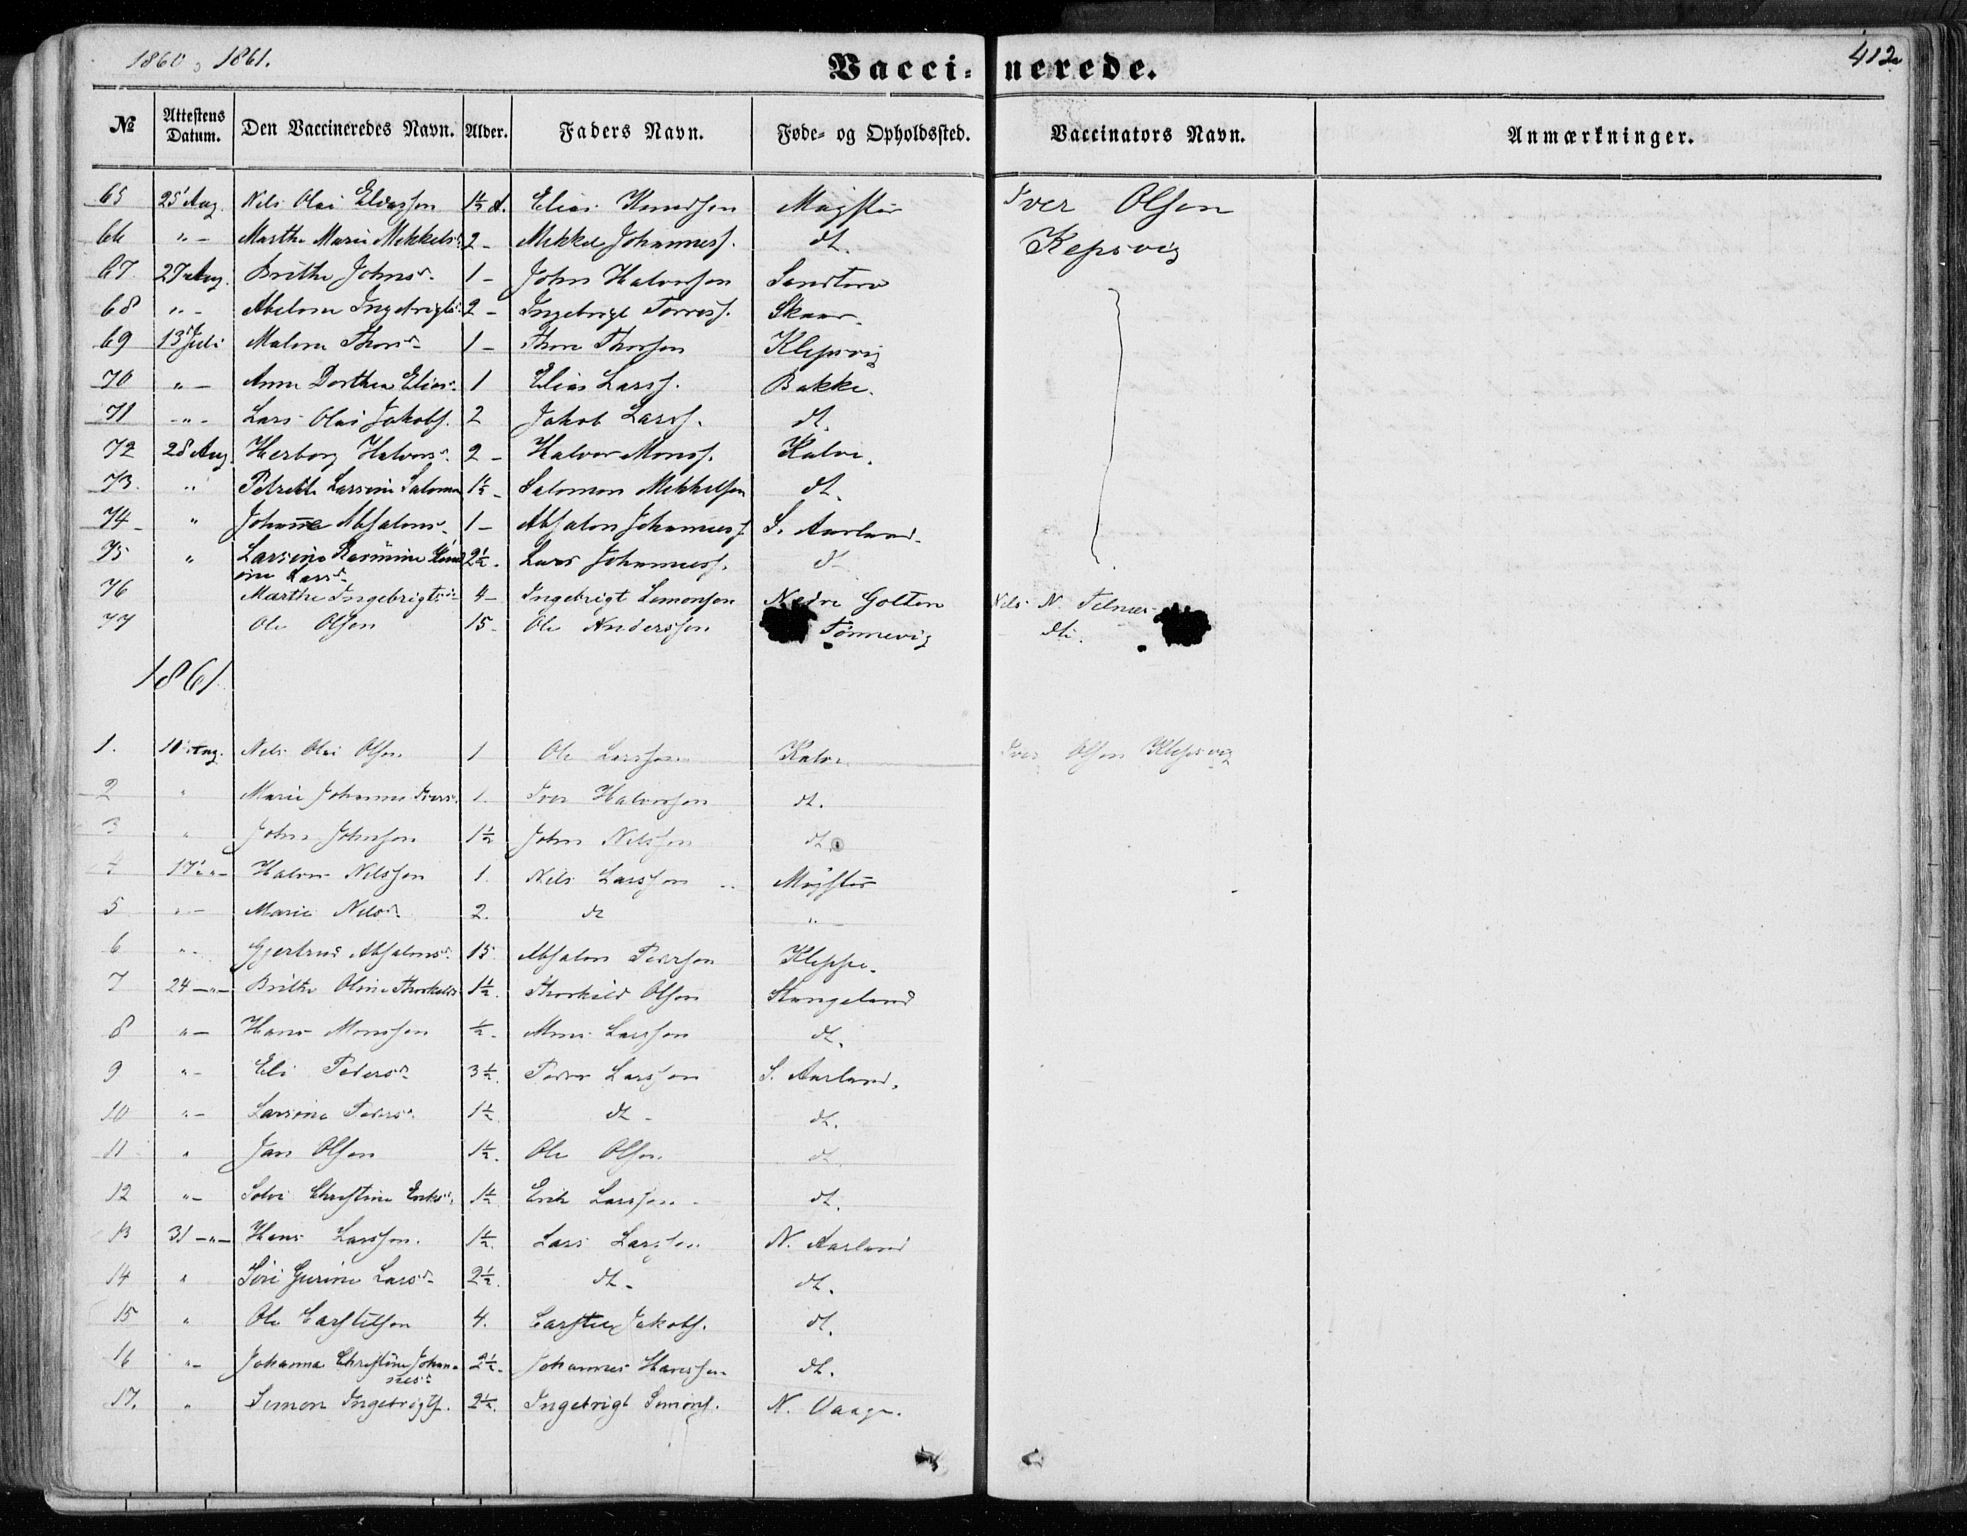 1860 & 1861.
Vacci-nerede.
412
№ | Attestens Datum. | Den Vaccineredes Navn. | Alder. | Faders Navn. | Føde- og Opholdssted. | Vaccinators Navn. | Anmærkninger.
65 | 25' Aug. | Nils Olai Eliassen | 1½ A. | Elias Knudsen | Møgster | Iver Olsen
66 | " - | Marthe Marie Mikkelsd. | 2 - | Mikkel Johannesf. | dt. | Klepsvig
67 | 27 Aug. | Brithe Johnsd. | 1 - | John Halvorsen | Sandtorv
68 | " - | Abelone Ingebrigtsd. | 2 - | Ingebrigt Torresf. | Skaar.
69 | 13 Juli | Malene Thorsd. | 1 - | Thore Thorsen | Klepsvig
70 | " - | Anne Dorthea Eliasd. | 1 | Elias Larsf. | Bakke.
71 | " - | Lars Olai Jakobf. | 2 | Jakob Larsf. | dt.
72 | 28 Aug. | Herborg Halvorsd. | 2 - | Halvor Monsf. | Kalve.
73. | " | Petrikke Larsine Salomon | 1½ - | Salomon Mikkelsen | dt.
74 - | " | Johanne Absalonsd. | 1 - | Absalon Johannesf. | S. Aarland.
75 | " | Larsine Rasmine
ine Larsd. | 2½. | Lars Johannesf. | dt
76 | Marthe Ingebrigtsd. | 4 - | Ingebrigt Simonsen | Nedre Golten | Nils N. Telnæs
77 | Ole Olsen | 15. | Ole Anderssen | Tømmevig | dt.
1861
1. | 10' Aug. | Nils Olai Olsen | 1 | Ole Larssen | Kalve | Iver Olsen Klepsvig
2 | " | Marie Johanne Iversd. | 1. | Iver Halvorsen | dt.
3 | " | John Johnsen | 1½ | John Nilssen | dt.
4 | 17' " - | Halvor Nilssen | 1. | Nils Larssen | Møgster
5 | " - | Marie Nilsd. | 2. | dt | "
6 | " - | Gjertrud Absalonsd. | 15. | Absalon Pederssen | Kleppe.
7 | 24 - " - | Brithe Oline Thorkildsd. | 1½. | Thorkild Olsen | Stangeland
8 | " - | Hans Monssen | ½. | Mons Larssen | dt.
9 | " - | Eli Pedersd. | 3½. | Peder Larssen | S. Aarland.
10 | " - | Larsine Pedersd. | 1½ | dt - | dt.
11 | " | Jan Olsen | 1½. | Ole Olsen | dt.
12 | " - | Solvi Christine Eriksd. | 1½ | Erik Larssen | dt.
13 | 31 - " - | Hans Larssen. | 1½. | Lars Larssen | N. Aarland
14 | " | Siri Gurine Larsd. | 2½. | dt - | dt.
15 | " | Ole Carstensen | 4. | Carsten Jakobf. | dt.
16 | " - | Johanna Christine Johan-
nesd. | 2½. | Johannes Hanssen | dt.
17. | " | Simon Ingebrigtf. | 2½. | Ingebrigt Simonf. | N. Vaage.